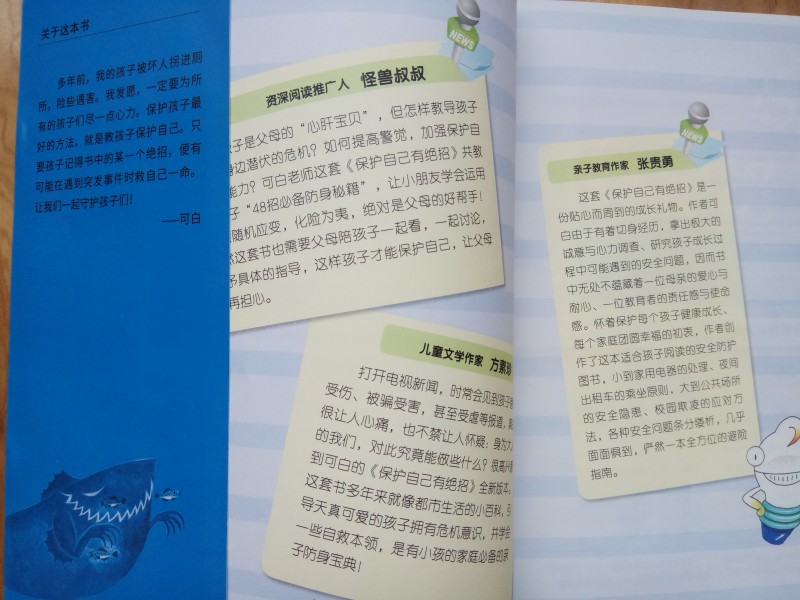 关于这本书
多年前，我的孩子被坏人拐进厕
所，险些遇害。我发愿，一定要为所
有的孩子们尽一点心力。保护孩子最
好的方法，就是教孩子保护自己。只
要孩子记得书中的某一个绝招，便有
可能在遇到突发事件时救自己一命。
让我们一起守护孩子们！
——可白
NEWS
资深阅读推广人 怪兽叔叔
子是父母的“心肝宝贝”，但怎样教导孩子
身边潜伏的危机？如何提高警觉，加强保护自
能力？可白老师这套《保护自己有绝招》共教
子“48招必备防身秘籍”，让小朋友学会运用
随机应变，化险为夷，绝对是父母的好帮手！
这套书也需要父母陪孩子一起看，一起讨论，
予具体的指导，这样孩子才能保护自己，让父母
再担心。
儿童文学作家 方素
打开电视新闻，时常会见到孩子
受伤、被骗受害，甚至受虐等报道，
很让人心痛，也不禁让人怀疑：身为大
的我们，对此究竟能做些什么？很高兴
到可白的《保护自己有绝招》全新版本，
这套书多年来就像都市生活的小百科，引
导天真可爱的孩子拥有危机意识，并学会
一些自救本领，是有小孩的家庭必备的亲
子防身宝典！
NEWS
亲子教育作家 张贵勇
这套《保护自己有绝招》是一
份贴心而周到的成长礼物。作者可
白由于有着切身经历，拿出极大的
诚意与心力调查、研究孩子成长过
程中可能遇到的安全问题，因而书
中无处不蕴藏着一位母亲的爱心与
耐心、一位教育者的责任感与使命
感。怀着保护每个孩子健康成长、
每个家庭团圆幸福的初衷，作者创
作了这本适合孩子阅读的安全防护
图书，小到家用电器的处理、夜间
出租车的乘坐原则，大到公共场所
的安全隐患、校园欺凌的应对方
法，各种安全问题条分缕析，几乎
面面俱到，俨然一本全方位的避险
指南。